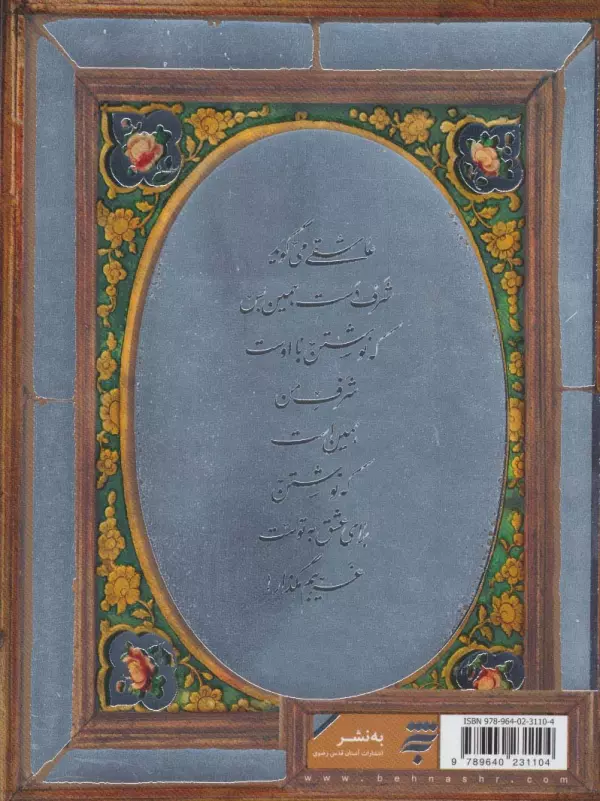 عاشقی می گوید
شرف دست همین بس
که نوشتن با اوست
شرف من
همین است
که نوشتن
برای عشق به توست
غریبم مگذار!
به‌نشر
انتشارات آستان قدس رضوی
ISBN 978-964-02-3110-4
9 789640 231104
www.behnashr.com